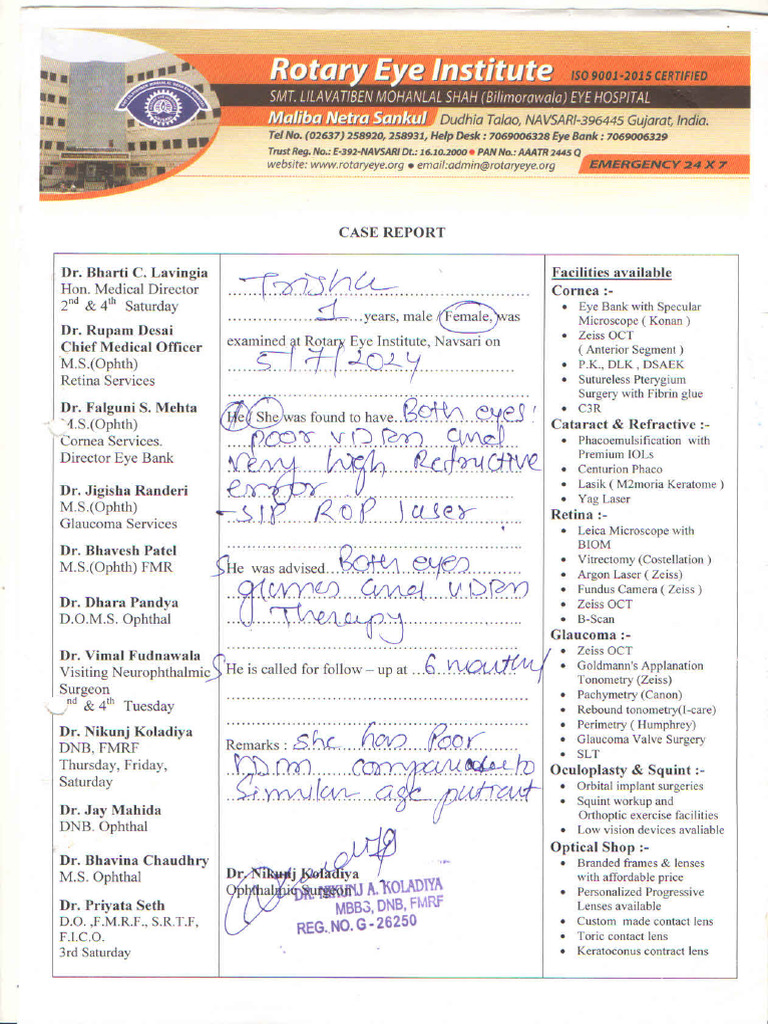 Rotary Eye Institute ISO 9001-2015 CERTIFIED
SMT. LILAVATIBEN MOHANLAL SHAH (Bilimorawala) EYE HOSPITAL
Maliba Netra Sankul Dudhia Talao, NAVSARI-396445 Gujarat, India.
Tel No. (02637) 258920, 258931, Help Desk : 7069006328 Eye Bank : 7069006329
Trust Reg. No.: E-392-NAVSARI Dt.: 16.10.2000 ● PAN No.: AAATR 2445 Q
website: www.rotaryeye.org ● email:admin@rotaryeye.org EMERGENCY 24 X 7
CASE REPORT
Dr. Bharti C. Lavingia
Hon. Medical Director
2nd & 4th Saturday
Dr. Rupam Desai
Chief Medical Officer
M.S.(Ophth)
Retina Services
Dr. Falguni S. Mehta
M.S.(Ophth)
Cornea Services.
Director Eye Bank
Dr. Jigisha Randeri
M.S.(Ophth)
Glaucoma Services
Dr. Bhavesh Patel
M.S.(Ophth) FMR
Dr. Dhara Pandya
D.O.M.S. Ophthal
Dr. Vimal Fudnawala
Visiting Neurophthalmic
Surgeon
nd & 4th Tuesday
Dr. Nikunj Koladiya
DNB, FMRF
Thursday, Friday,
Saturday
Dr. Jay Mahida
DNB. Ophthal
Dr. Bhavina Chaudhry
M.S. Ophthal
Dr. Priyata Seth
D.O. ,F.M.R.F., S.R.T.F,
F.I.C.O.
3rd Saturday
Trisha
1 years, male / Female, was
examined at Rotary Eye Institute, Navsari on
5/7/2024
He / She was found to have Both eyes
poor
and
very high Refractive
error
- SIP ROP laser
SHe was advised Both eyes
glasses and
Therapy
SHe is called for follow – up at 6 months
Remarks : she has Poor
compared to
Similar age
Dr. Nikunj Koladiya
Ophthalmic Surgeon
DR. NIKUNJ A. KOLADIYA
MBBS, DNB, FMRF
REG. NO. G - 26250
Facilities available
Cornea :-
• Eye Bank with Specular
Microscope ( Konan )
• Zeiss OCT
( Anterior Segment )
• P.K., DLK , DSAEK
• Sutureless Pterygium
Surgery with Fibrin glue
• C3R
Cataract & Refractive :-
• Phacoemulsification with
Premium IOLs
• Centurion Phaco
• Lasik ( M2moria Keratome )
• Yag Laser
Retina :-
• Leica Microscope with
BIOM
• Vitrectomy (Costellation )
• Argon Laser ( Zeiss)
• Fundus Camera ( Zeiss )
• Zeiss OCT
• B-Scan
Glaucoma :-
• Zeiss OCT
• Goldmann's Applanation
Tonometry (Zeiss)
• Pachymetry (Canon)
• Rebound tonometry(I-care)
• Perimetry ( Humphrey)
• Glaucoma Valve Surgery
• SLT
Oculoplasty & Squint :-
• Orbital implant surgeries
• Squint workup and
Orthoptic exercise facilities
• Low vision devices avaliable
Optical Shop :-
• Branded frames & lenses
with affordable price
• Personalized Progressive
Lenses available
• Custom made contact lens
• Toric contact lens
• Keratoconus contract lens